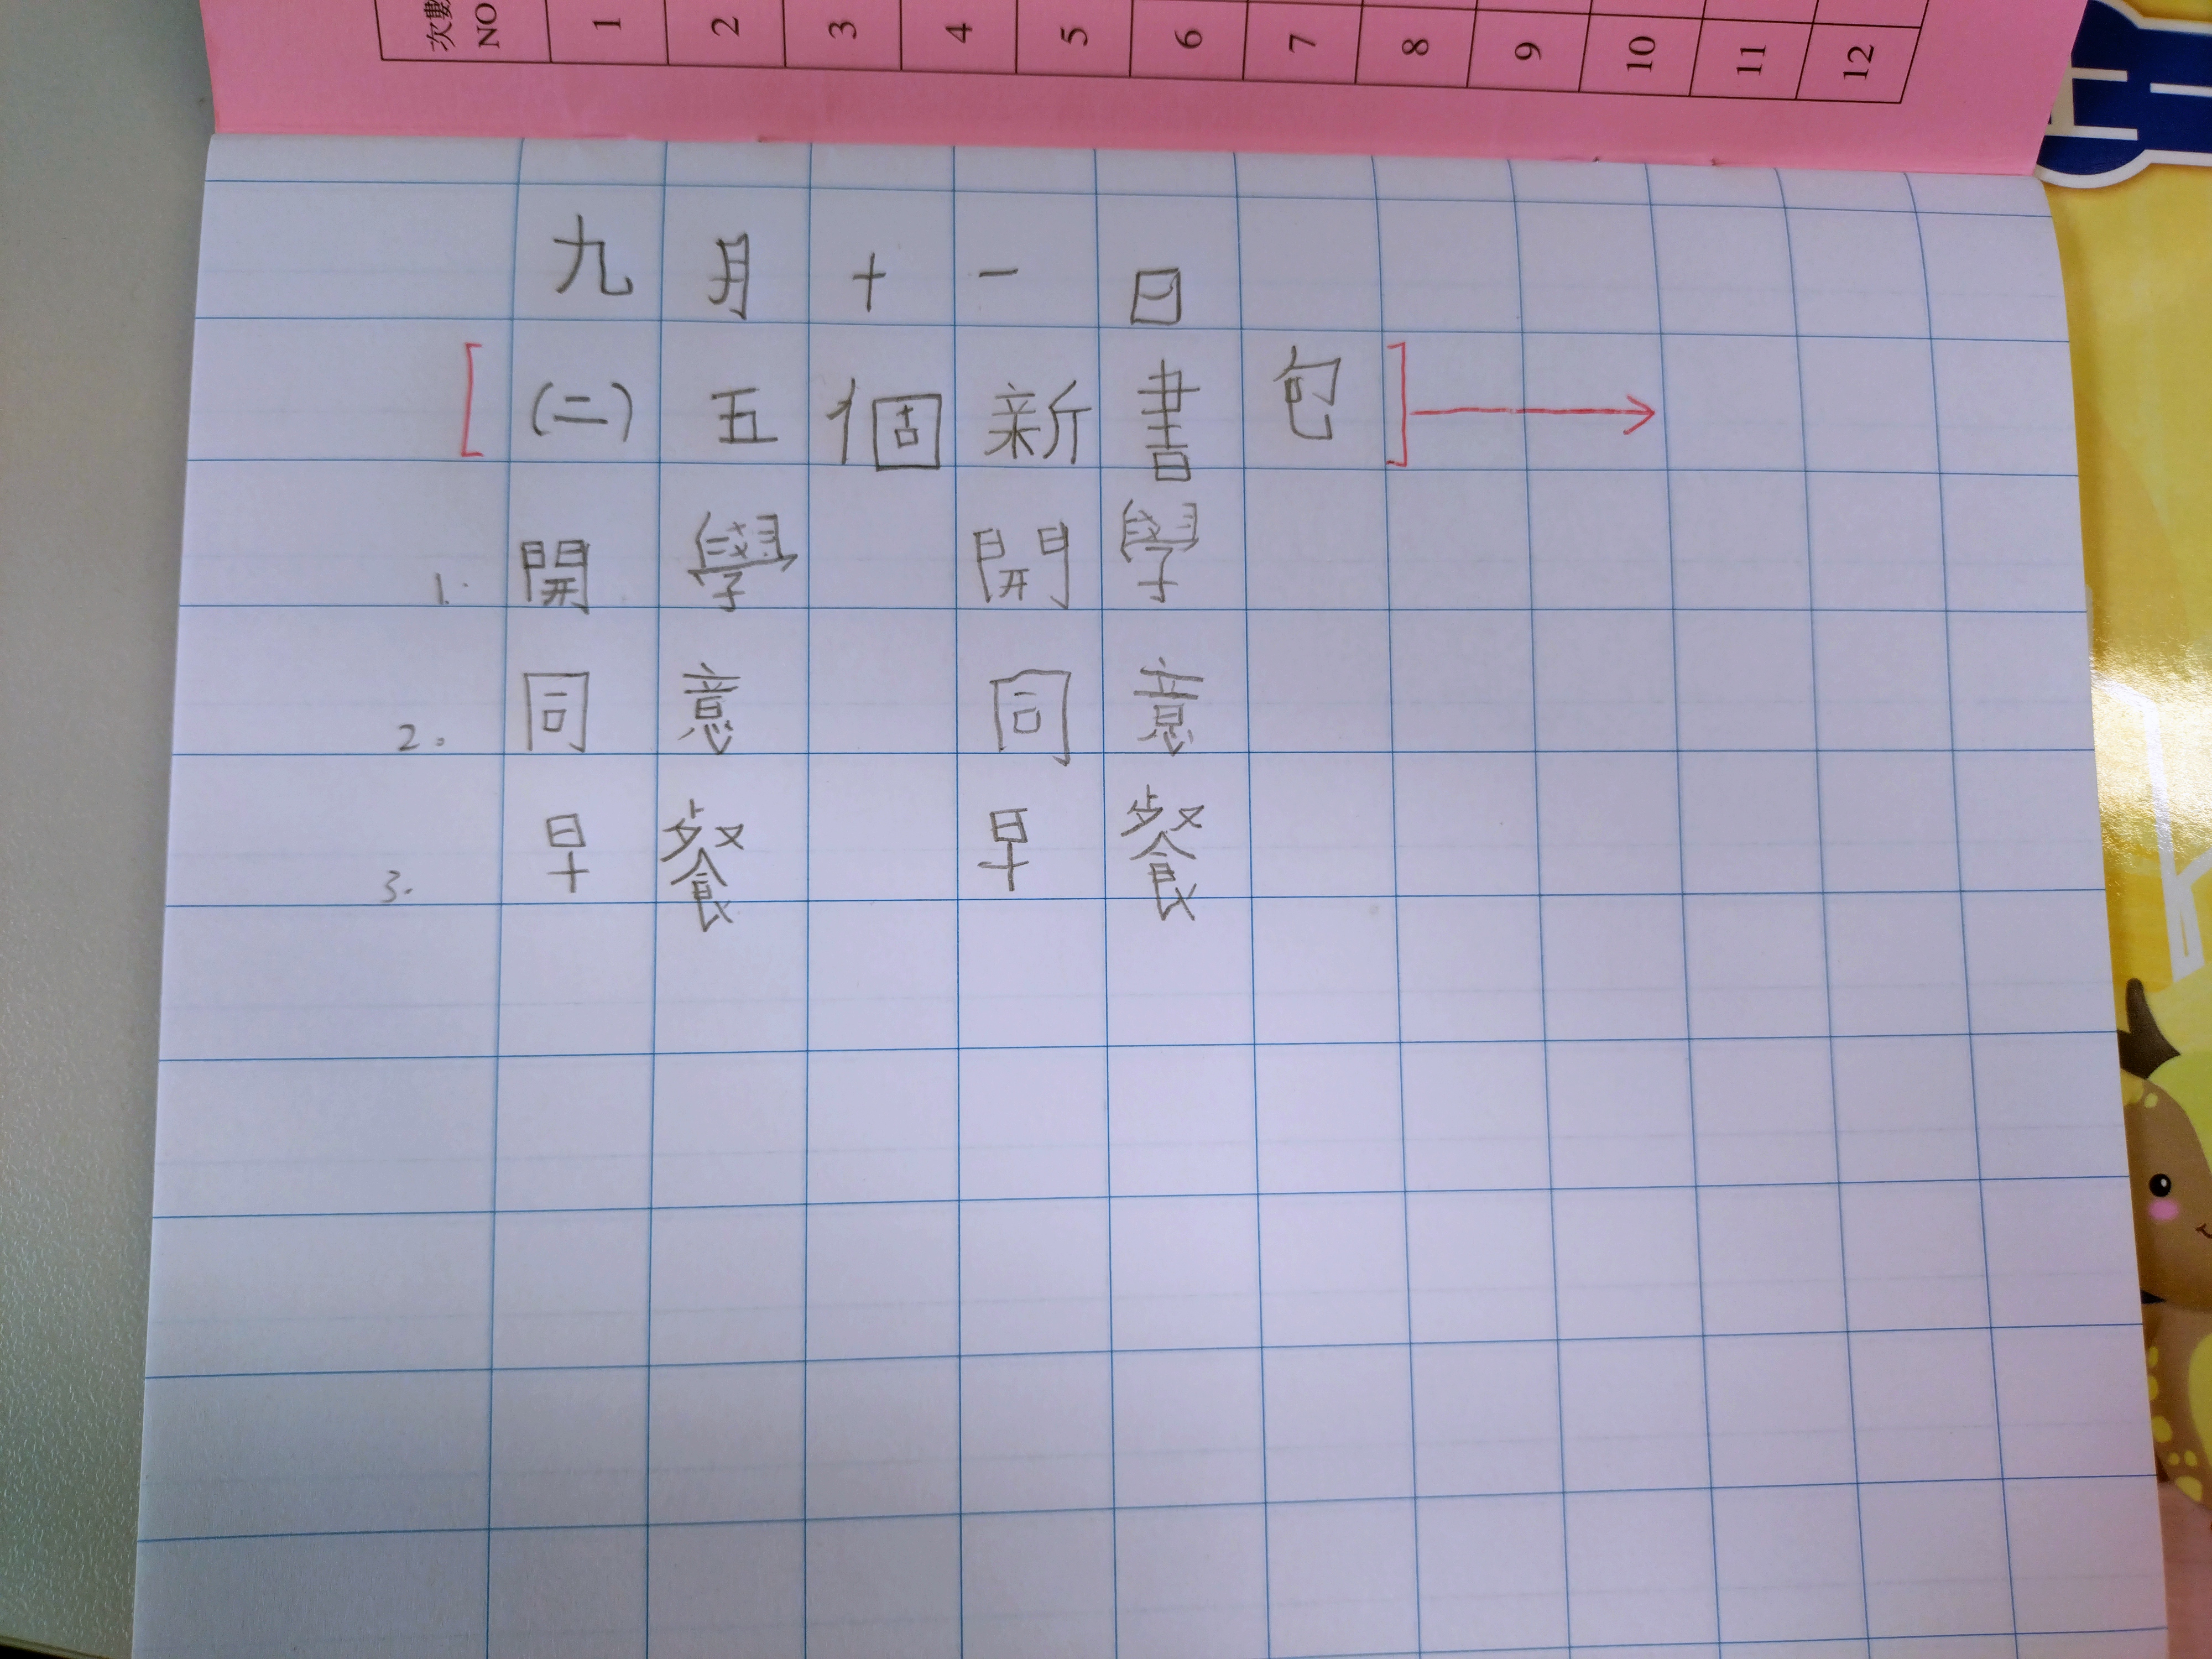 次數 NO 1 2 3 4 5 6 7 8 9 10 11 12
九月十一日
[(二)五個新書包]→
1. 開學 開學
2. 同意 同意
3. 早餐 早餐